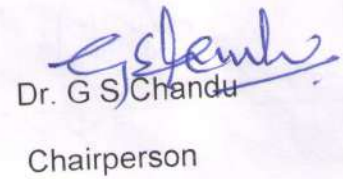 Dr. G S Chandu
Chairperson